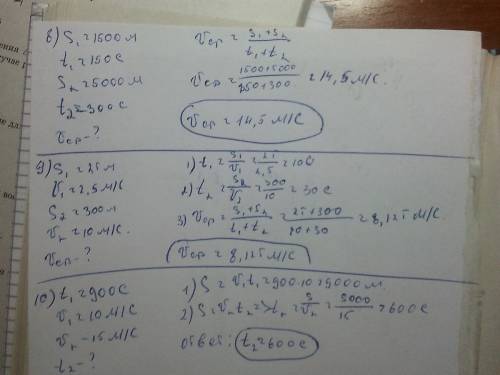 8) S₁ = 1500 м
t₁ = 150 с
S₂ = 5000 м
t₂ = 300 с
Vср - ?
Vср = (S₁ + S₂) / (t₁ + t₂)
Vср = (1500 + 5000) / (150 + 300) = 14,5 м/с.
Vср = 14,5 м/с
9) S₁ = 25 м
V₁ = 2,5 м/с
S₂ = 300 м
V₂ = 10 м/с.
Vср - ?
1) t₁ = S₁ / V₁ = 25 / 2,5 = 10 с
2) t₂ = S₂ / V₂ = 300 / 10 = 30 с
3) Vср = (S₁ + S₂) / (t₁ + t₂) = (25 + 300) / (10 + 30) = 8,125 м/с.
Vср = 8,125 м/с
10) t₁ = 900 с
V₁ = 10 м/с
V₂ - 15 м/с
t₂ - ?
1) S = V₁ t₁ = 900 · 10 = 9000 м.
2) S = V₂ t₂ => t₂ = S / V₂ = 9000 / 15 = 600 с
ответ: t₂ = 600 с